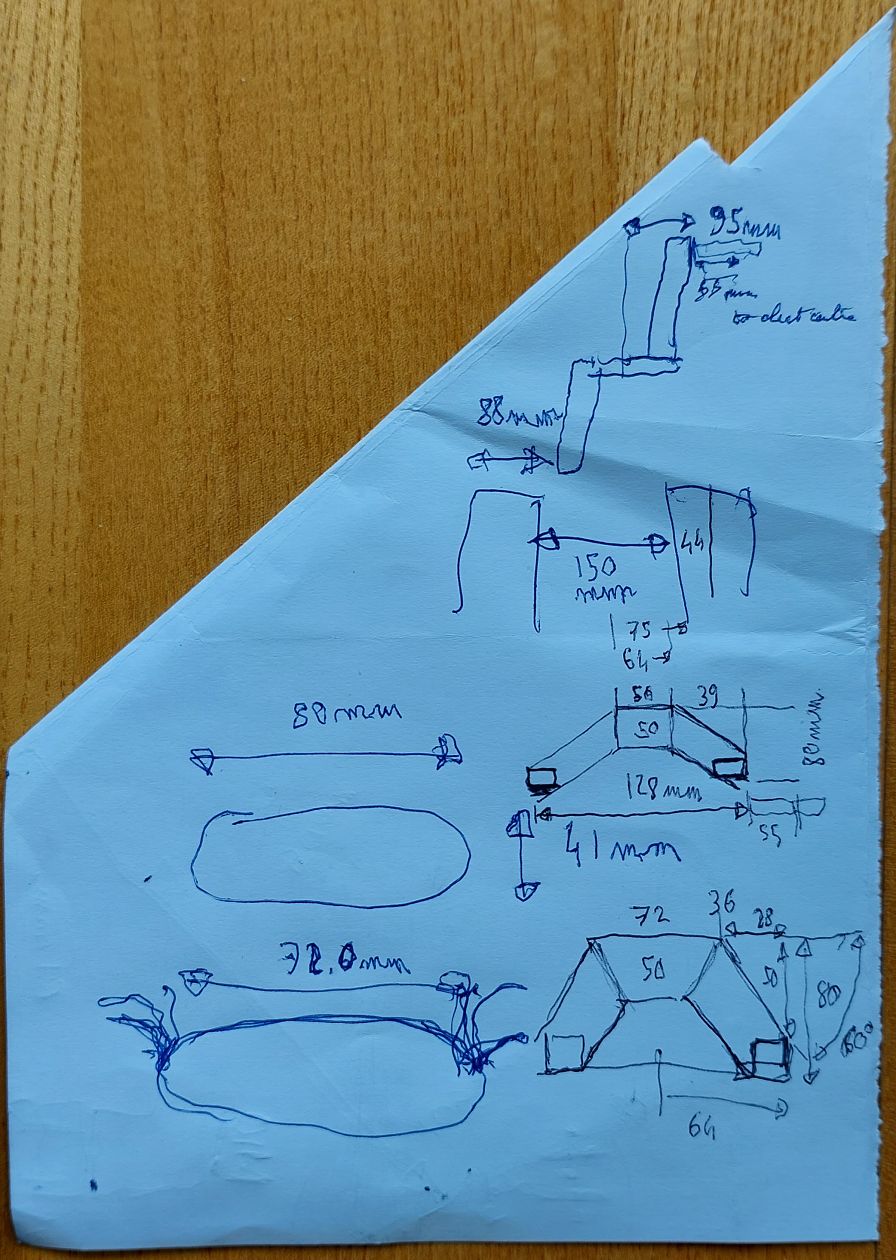 95mm
55mm
88mm
44
150
mm
75
64
50
39
88mm
50
80mm
128mm
55
41mm
36
72
28
72.0mm
50
50
80
60°
64